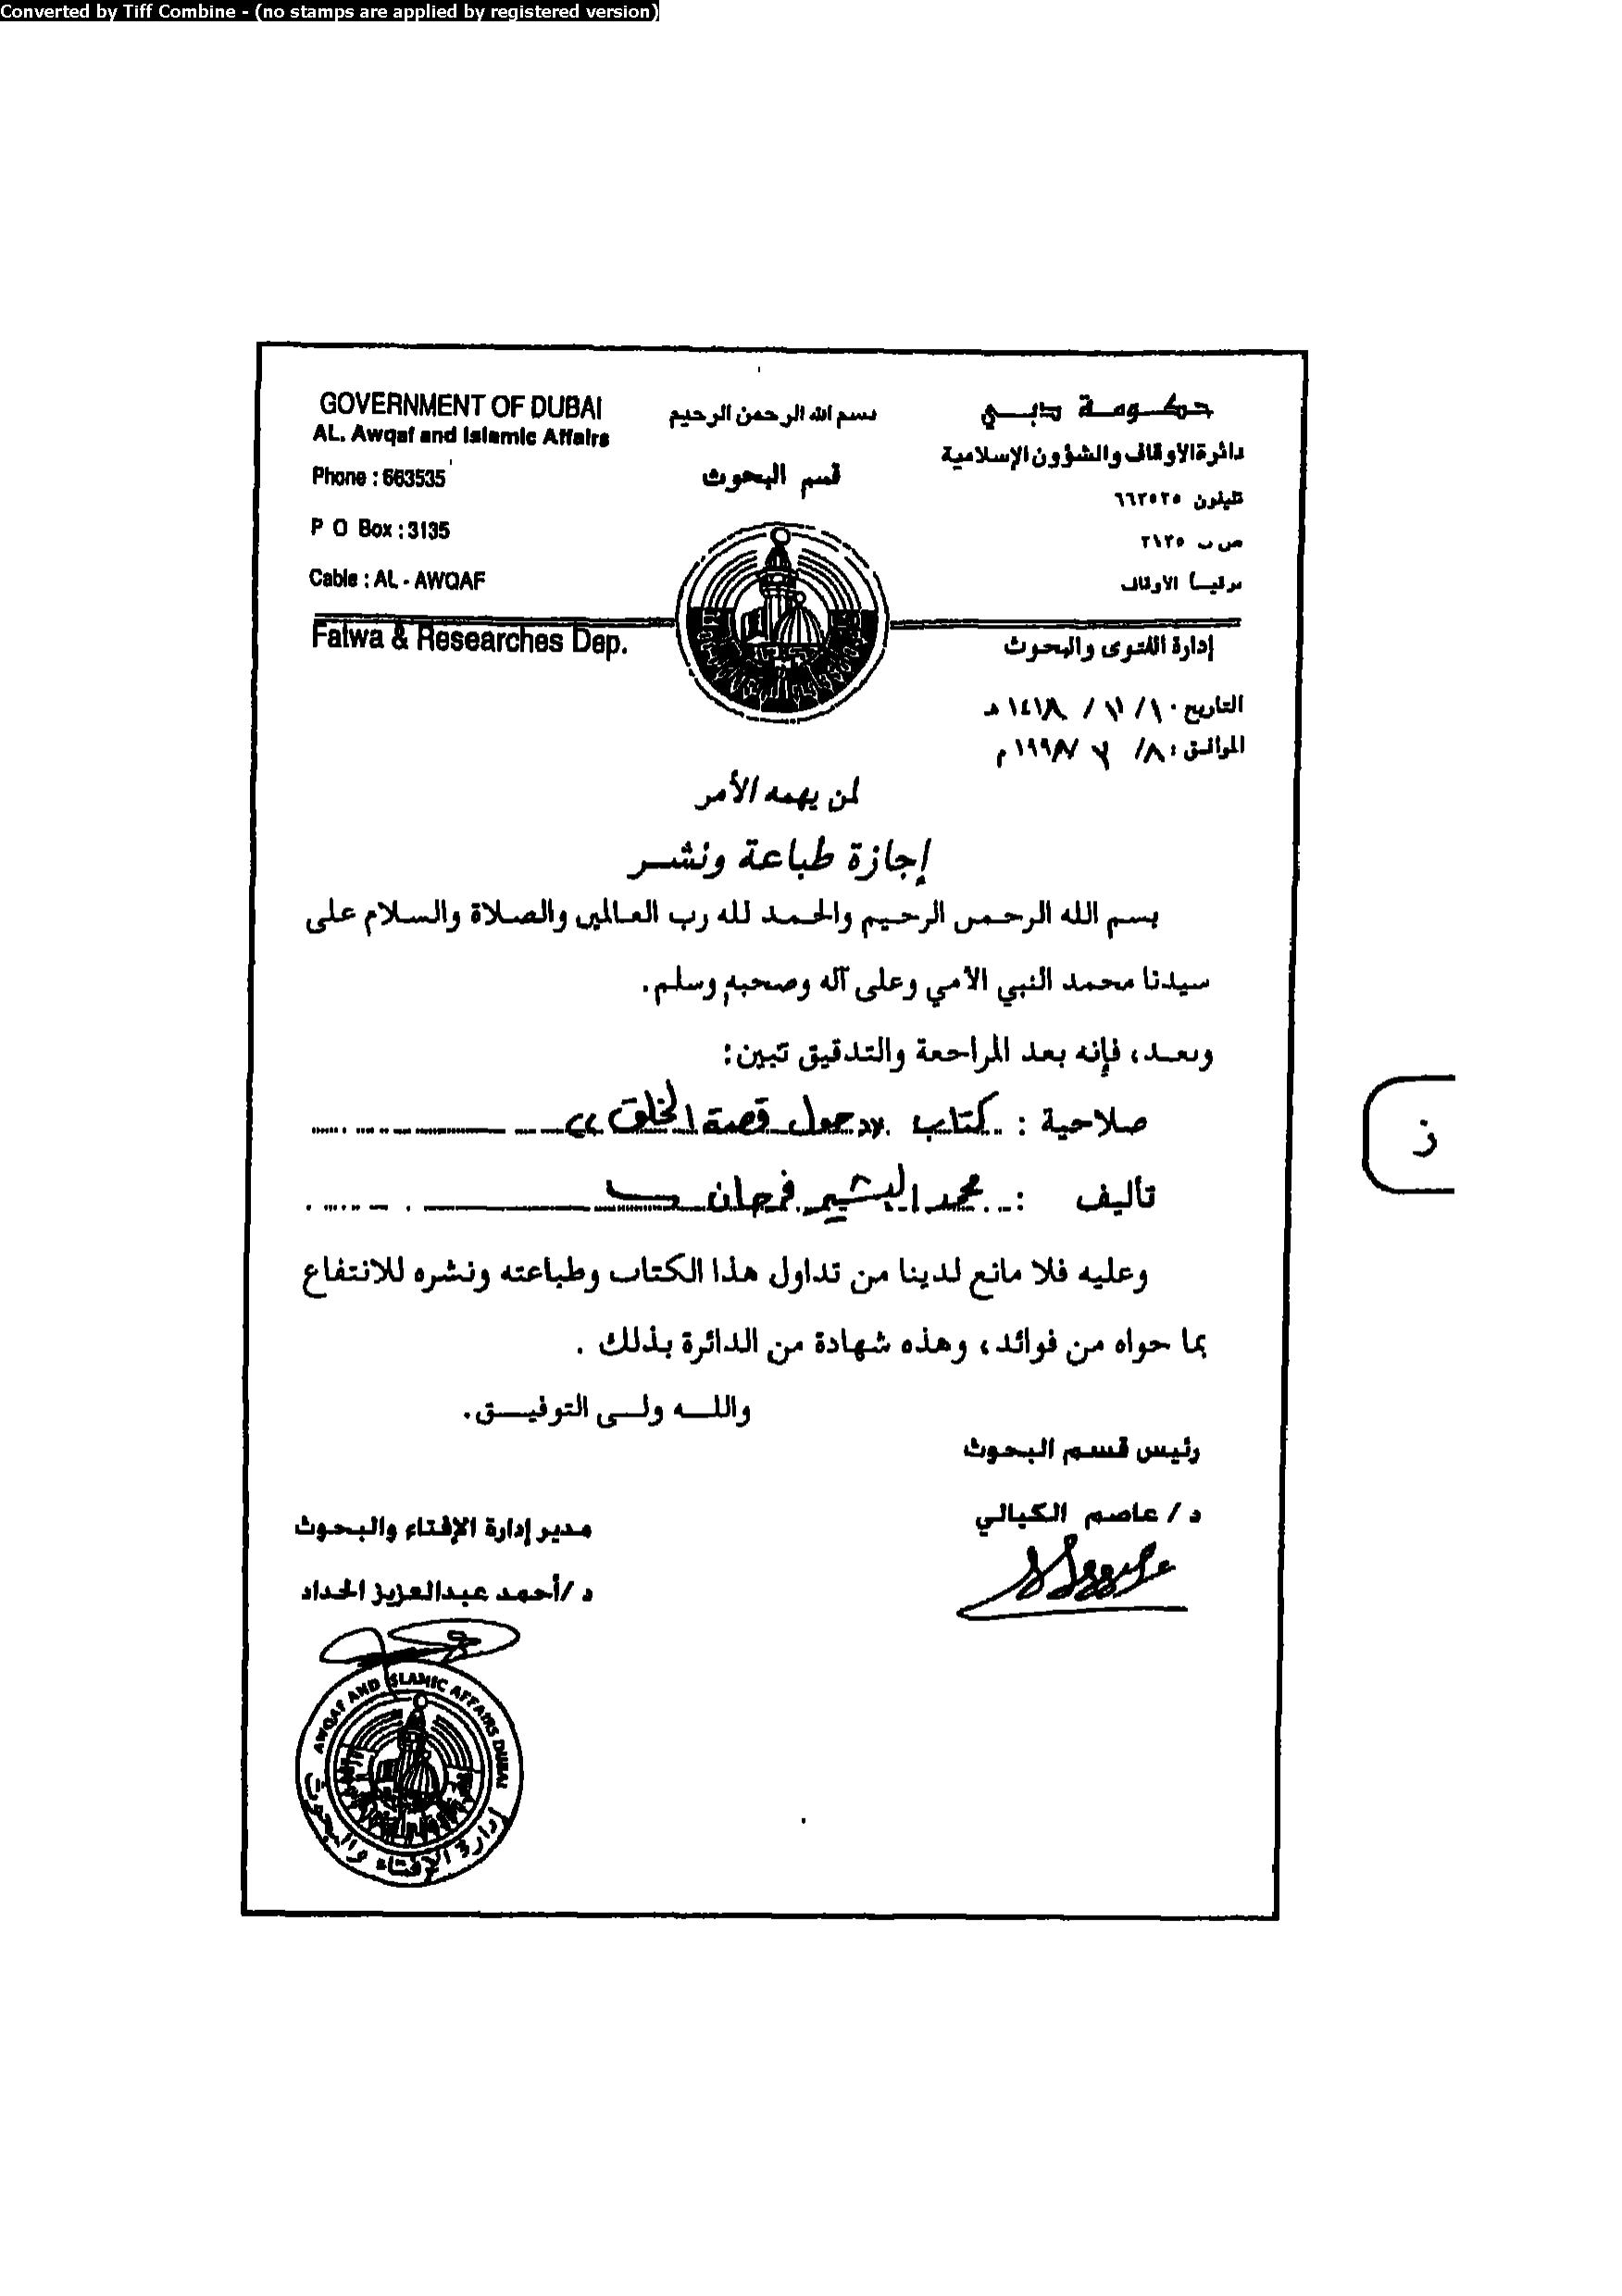 Converted by Tiff Combine - (no stamps are applied by registered version)
GOVERNMENT OF DUBAI
AL. Awqaf and Islamic Affairs
Phone : 663535
P O Box : 3135
Cable : AL - AWQAF
Fatwa & Researches Dep.
بسم الله الرحمن الرحيم
قسم البحوث
حكومة دبي
دائرة الاوقاف والشؤون الإسلامية
تليفون ٦٦٣٥٣٥
ص ب ٣١٣٥
برقيا الاوقاف
إدارة الفتوى والبحوث
التاريخ ١٠/ ١١/ ١٤١٨ هـ
الموافق : ٨/ ١٩٩٨ م
لمن يهمه الأمر
إجازة طباعة ونشر
بسم الله الرحمن الرحيم والحمد لله رب العالمين والصلاة والسلام على
سيدنا محمد النبي الامي وعلى آله وصحبه وسلم.
وبعد، فإنه بعد المراجعة والتدقيق تبين:
صلاحية : كتاب «حول قصة الخلق»
تأليف : محمد البشير فرحان
وعليه فلا مانع لدينا من تداول هذا الكتاب وطباعته ونشره للانتفاع
بما حواه من فوائد، وهذه شهادة من الدائرة بذلك .
والله ولى التوفيق.
رئيس قسم البحوث
د / عاصم الكيالي
مدير إدارة الإفتاء والبحوث
د /أحمد عبدالعزيز الحداد
AWQAF AND ISLAMIC AFFAIRS DUBAI
إدارة الإفتاء والبحوث
ز